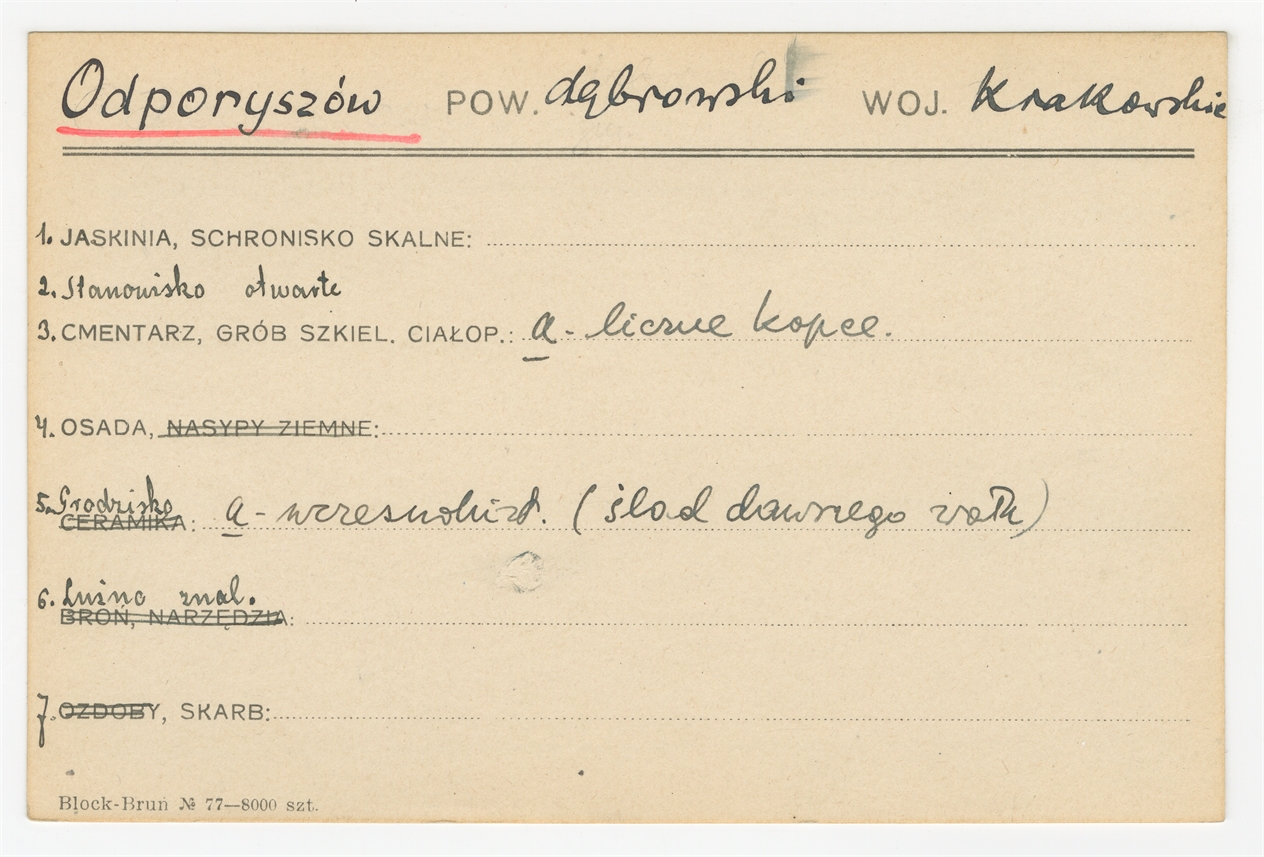 Odporyszów POW. dąbrowski WOJ. Krakowskie
1. JASKINIA, SCHRONISKO SKALNE:
2. Stanowisko otwarte
3. CMENTARZ, GRÓB SZKIEL. CIAŁOP.: a - liczne kopce.
4. OSADA, NASYPY ZIEMNE:
5. Grodzisko
CERAMIKA: a - wczesnohist. (ślad dawnego wału)
6. Luźno znal.
BROŃ, NARZĘDZIA:
7. OZDOBY, SKARB:
Block-Bruń № 77—8000 szt.